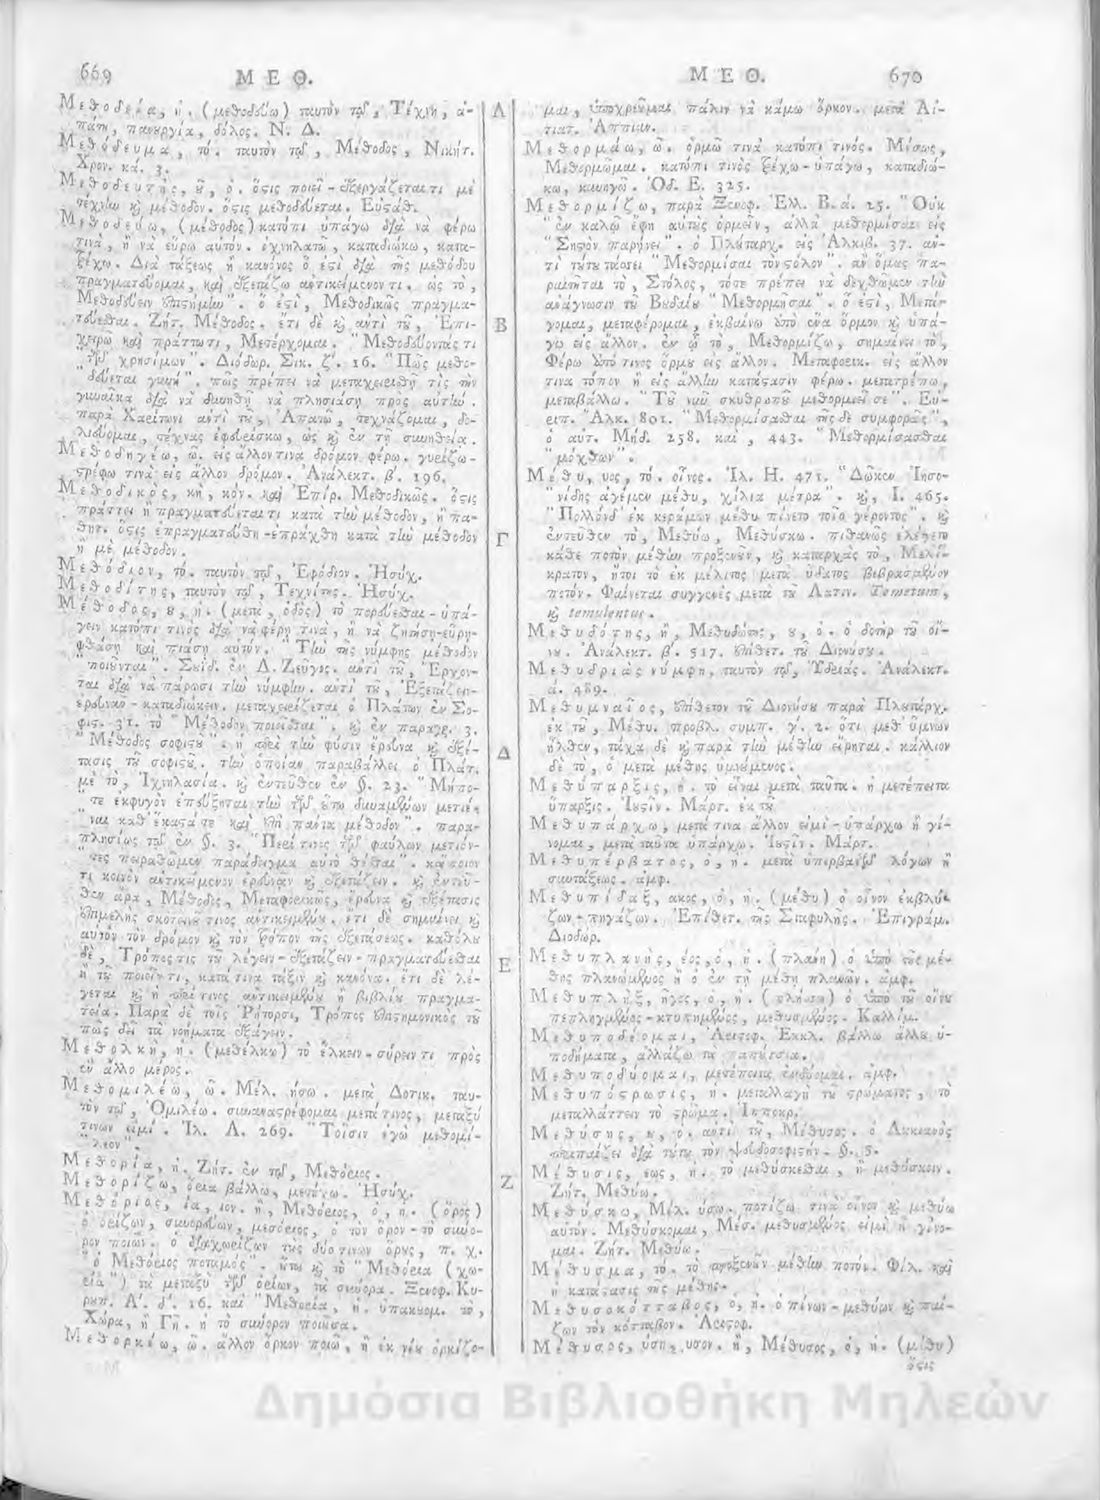 669 ΜΕΘ.
Μεθοδεία, ἡ. (μεθοδεύω) ταυτὸν τῷ, Τέχνη, ἀ-
πάτη, πανουργία, δόλος. Ν. Δ.
Μεθόδευμα, τό. ταυτὸν τῷ, Μέθοδος, Νικήτ.
Χρον. κά. 3.
Μεθοδευτής, οῦ, ὁ. ὅστις ποιεῖ - ἐξεργάζεταί τι μὲ
τέχνην καὶ μέθοδον. ὅστις μεθοδεύεται. Εὐσταθ.
Μεθοδεύω, (μέθοδος) κατόπι ὑπάγω διὰ νὰ φέρω
τινὰ, ἢ νὰ εὕρω αὐτόν. ἐχνηλατῶ, καταδιώκω, κατα-
τρέχω. Διὰ τάξεως ἢ κανόνος ὅ ἐστι διὰ τῆς μεθόδου
πραγματεύομαι, καὶ ἐξετάζω ἀντικείμενόν τι. ὡς τὸ,
Μεθοδεύειν ἐπιστήμην". ὅ ἐστι, Μεθοδικῶς πραγμα-
τεύεσθαι. Ζήτ. Μέθοδος. ἔτι δὲ καὶ ἀντὶ τοῦ, Ἐπι-
χειρῶ καὶ πράττω τι, Μετέρχομαι. "Μεθοδεύοντάς τι
"τῶν χρησίμων". Διόδωρ. Σικ. ζ. 16. "Πῶς μεθο-
δεύεται γυνή". πῶς πρέπει νὰ μεταχειρισθῇ τὶς τὴν
γυναῖκα διὰ νὰ δυνηθῇ νὰ πλησιάσῃ πρὸς αὐτήν.
παρὰ Χαρίτωνι ἀντὶ τοῦ, Ἀπατῶ, τεχνάζομαι, δο-
λιεύομαι, τέχνας ἐφευρίσκω, ὡς καὶ ἐν τῇ συνηθείᾳ.
Μεθοδηγέω, ῶ. εἰς ἄλλον τινὰ δρόμον φέρω. γυρίζω -
στρέφω τινὰ εἰς ἄλλον δρόμον. Ἀνάλεκτ. β. 196.
Μεθοδικός, κὴ, κόν. καὶ Ἐπίρ. Μεθοδικῶς. ὅστις
πράττει ἢ πραγματεύεταί τι κατὰ τὴν μέθοδον, ἢ πα-
θητ. ὅστις ἐπραγματεύθη - ἐπράχθη κατὰ τὴν μέθοδον
ἢ μὲ μέθοδον.
Μεθόδιον, τό. ταυτὸν τῷ, Ἐφόδιον. Ἡσύχ.
Μεθοδίτης, ταυτὸν τῷ, Τεχνίτης. Ἡσύχ.
Μέθοδος, ου, ἡ. (μετὰ, ὁδὸς) τὸ πορεύεσθαι - ὑπά-
γειν κατόπι τινὸς διὰ νὰ φέρῃ τινὰ, ἢ νὰ ζητήσῃ - εὕρῃ -
φθάσῃ καὶ πιάσῃ αὐτόν. "Τὴν τῆς νύμφης μέθοδον
"ποιοῦνται". Σουΐδ. ἐν Λ. Ζεῦγος. ἀντὶ τοῦ, Ἔρχον-
ται διὰ νὰ πάρωσι τὴν νύμφην. ἀντὶ τοῦ, Ἐξετάζειν -
ἐρευνᾶν - καταδιώκειν. μεταχειρίζεται ὁ Πλάτων ἐν Σο-
φις. 31. τὸ "Μέθοδον ποιεῖσθαι". καὶ ἐν παραγρ. 3.
"Μέθοδος σοφιστοῦ". ἡ περὶ τὴν φύσιν ἔρευνα καὶ ἐξέ-
τασις τοῦ σοφιστοῦ. τὴν ὁποίαν παραβάλλει ὁ Πλάτ.
μὲ τὸ, Ἰχνηλασία. καὶ ἐντεῦθεν ἐν §. 23. "Μήπο-
τε ἐκφυγὸν ἐπεύξηται τὴν τῶν οὕτω δυναμένων μετιέ-
"ναι καθ' ἕκαστά τε καὶ ἐπὶ πάντα μέθοδον". παρα-
πλησίως τῷ ἐν §. 3. "Περί τινος τῶν φαύλων μετιόν-
"τες πειραθῶμεν παράδειγμα αὐτὸ θέσθαι". καί ποιόν
τι κοινὸν ἀντικείμενον ἐρευνᾶν καὶ ἐξετάζειν. καὶ ἐντεῦ-
θεν ἄρα, Μέθοδος, Μεταφορικῶς, ἔρευνα καὶ ἐξέτασις
ἐπιμελὴς σκοτεινοῦ τινος ἀντικειμένου. ἔτι δὲ σημαίνει καὶ
αὐτὸν τὸν δρόμον καὶ τὸν τρόπον τῆς ἐξετάσεως. καθόλου
δὲ, Τρόπος τις τοῦ λέγειν - ἐξετάζειν - πραγματεύεσθαι
ἢ τοῦ ποιεῖν τι, κατά τινα τάξιν καὶ κανόνα. ἔτι δὲ λέ-
γεται καὶ ἡ περί τινος ἀντικειμένου ἢ βιβλίου πραγμα-
τεία. Παρὰ δὲ τοῖς Ῥήτορσι, Τρόπος ἐπιστημονικὸς τοῦ
πῶς δεῖ τὰ νοήματα ἐξάγειν.
Μεθολκὴ, ἡ. (μεθέλκω) τὸ ἕλκειν - σύρειν τι πρὸς
ἓν ἄλλο μέρος.
Μεθομιλέω, ῶ. Μέλ. ήσω. μετὰ Δοτικ. ταυ-
τὸν τῷ, Ὁμιλέω. συναναστρέφομαι μετά τινος, μεταξύ
τινων εἰμί. Ἰλ. Α. 269. "Τοῖσιν ἐγὼ μεθομί-
"λεον".
Μεθορία, ἡ. Ζήτ. ἐν τῷ, Μεθόριος.
Μεθορίζω, ὅρια βάλλω, μετάγω. Ἡσύχ.
Μεθόριος, ία, ιον. ἢ, Μεθόριος, ὁ, ἡ. (ὅρος)
ὁ ὁρίζων, συνορεύων, μεσόριος, ὁ τὸν ὅρον - τὸ σύνο-
ρον ποιῶν. ὁ διαχωρίζων τοὺς δύο τινῶν ὅρους, π. χ.
"ὁ Μεθόριος ποταμός". οὕτω καὶ τὸ "Μεθόρια (χω-
ρία") τὰ μεταξὺ τῶν ὁρίων, τὰ σύνορα. Ξενοφ. Κυ-
ρουπ. Α. δ. 16. καὶ "Μεθορία, ἡ. ὑπακουομ. τὸ,
Χώρα, ἢ Γῆ. ἡ τὸ σύνορον ποιοῦσα.
Μεθορκέω, ῶ. ἄλλον ὅρκον ποιῶ, ἢ ἐκ νέου ὁρκίζο-
Α
Β
Γ
Δ
Ε
Ζ
ΜΕΘ. 670
μαι, ὑποχρεοῦμαι πάλιν νὰ κάμω ὅρκον. μετὰ Αἰ-
τιατ. Ἀππιαν.
Μεθορμάω, ῶ. ὁρμῶ τινὰ κατόπι τινός. Μέσως,
Μεθορμῶμαι. κατόπι τινὸς τρέχω - ὑπάγω, καταδιώ-
κω, κυνηγῶ. Ὀδ. Ε. 325.
Μεθορμίζω, παρὰ Ξενοφ. Ἑλλ. Β. ά. 25. "Οὐκ
"ἐν καλῷ ἔφη αὐτοὺς ὁρμεῖν, ἀλλὰ μεθορμίσαι εἰς
"Σηστὸν παρῄνει". ὁ Πλούταρχ. εἰς Ἀλκιβ. 37. ἀν-
τὶ τούτου τάσσει "Μεθορμίσαι τὸν στόλον". ἂν ὅμως πα-
ραιτῆται τὸ, Στόλος, τότε πρέπει νὰ δεχθῶμεν τὴν
ἀνάγνωσιν τοῦ Βουδαίου "Μεθορμῆσαι". ὅ ἐστι, Μετά-
γομαι, μεταφέρομαι, ἐκβαίνω ἀπὸ ἕνα ὅρμον καὶ ὑπά-
γω εἰς ἄλλον. ἐν ᾧ τὸ, Μεθορμίζω, σημαίνει τὸ,
Φέρω ἀπό τινος ὅρμου εἰς ἄλλον. Μεταφορικ. εἰς ἄλλον
τινα τόπον ἢ εἰς ἄλλην κατάστασιν φέρω. μετατρέπω,
μεταβάλλω. "Τοῦ νῦν σκυθρωποῦ μεθορμιεῖ σε". Εὐ-
ριπ. "Ἀλκ. 801. "Μεθορμίσασθαι τῆς δε συμφορᾶς",
ὁ αὐτ. Μήδ. 258. καὶ, 443. "Μεθορμίσασθαι
"μόχθων".
Μέθυ, υος, τό. οἶνος. Ἰλ. Η. 471. "Δῶκεν Ἰησο-
"νίδης ἀγέμεν μέθυ, χίλια μέτρα". καὶ, Ι. 465.
"Πολλὸν δ' ἐκ κεράμων μέθυ πίνετο τοῖο γέροντος". καὶ
ἐντεῦθεν τὸ, Μεθύω, Μεθύσκω. πιθανῶς ἐλέγετο
κάθε ποτὸν μέθην προξενοῦν, καὶ καταρχὰς τὸ, Μελί-
κρατον, ἤτοι τὸ ἐκ μέλιτος μετὰ ὕδατος βεβρασμένον
ποτόν. Φαίνεται συγγενὲς μετὰ τοῦ Λατιν. Temetum,
καὶ temulentus.
Μεθυδότης, ἢ, Μεθυδώτης, ου, ὁ. ὁ δοτὴρ τοῦ οἴ-
νου. Ἀνάλεκτ. β. 517. ἐπίθετ. τοῦ Διονύσου.
Μεθυδριὰς νύμφη, ταυτὸν τῷ, Ὑδριάς. Ἀνάλεκτ.
ά. 489.
Μεθυμναῖος, ἐπίθετον τοῦ Διονύσου παρὰ Πλουτάρχ.
ἐκ τοῦ, Μέθυ. προβλ. συμπ. γ. 2. ὅτι μεθ' ὕμνων
ἦλθεν, τάχα δὲ καὶ παρὰ τὴν μέθην εἴρηται. κάλλιον
δὲ τὸ, ὁ μετὰ μέθης ὑμνούμενος.
Μεθύπαρξις, ἡ. τὸ εἶναι μετὰ ταῦτα. ἡ μετέπειτα
ὕπαρξις. Ἰουστῖν. Μάρτ. ἐκ τοῦ
Μεθυπάρχω, μετά τινα ἄλλον εἰμὶ - ὑπάρχω ἢ γί-
νομαι, μετὰ ταῦτα ὑπάρχω. Ἰουστῖν. Μάρτ.
Μεθυπέρβατος, ὁ, ἡ. μετὰ ὑπερβατῶν λόγων ἢ
συντάξεως. ἀμφ.
Μεθυπίδαξ, ακος, ὁ, ἡ. (μέθυ) ὁ οἶνον ἐκβλύ-
ζων - πηγάζων. Ἐπίθετ. τῆς Σταφυλῆς. Ἐπιγράμ.
Διοδωρ.
Μεθυπλανὴς, έος, ὁ, ἡ. (πλάνη) ὁ ὑπὸ τῆς μέ-
θης πλανώμενος ἢ ὁ ἐν τῇ μέθῃ πλανῶν. ἀμφ.
Μεθυπλὴξ, ῆγος, ὁ, ἡ. (πλήσσω) ὁ ὑπὸ τοῦ οἴνου
πεπληγμένος - κτυπημένος, μεθυσμένος. Καλλίμ.
Μεθυποδέομαι, Ἀριστοφ. Ἐκκλ. βάλλω ἄλλα ὑ-
ποδήματα, ἀλλάζω τὰ παπούτσια.
Μεθυποδύομαι, μετέπειτα ἐνδύομαι. ἀμφ.
Μεθυπόστρωσις, ἡ. μεταλλαγὴ τοῦ στρώματος, τὸ
μεταλλάττειν τὸ στρῶμα. Ἱπποκρ.
Μεθύσης, ου, ὁ. ἀντὶ τοῦ, Μέθυσος. ὁ Λουκιανὸς
περιπαίζει διὰ τοῦτο τὸν ψευδοσοφιστήν. §. 5.
Μέθυσις, εως, ἡ. τὸ μεθύσκεσθαι, ἢ μεθύσκειν.
Ζήτ. Μεθύω.
Μεθύσκω, Μέλ. ύσω. ποτίζω τινὰ οἶνον καὶ μεθύω
αὐτόν. Μεθύσκομαι, Μέσ. μεθυσμένος εἰμὶ ἢ γίνο-
μαι. Ζήτ. Μεθύω.
Μέθυσμα, τό. τὸ προξενοῦν μέθην ποτόν. Φίλ. καὶ
ἡ κατάστασις τῆς μέθης.
Μεθυσοκότταβος, ὁ, ἡ. ὁ πίνων - μεθύων καὶ παί-
ζων τὸν κότταβον. Ἀριστοφ.
Μέθυσος, ύση, υσον. ἢ, Μέθυσος, ὁ, ἡ. (μέθυ)
ὅστις
Δημόσια Βιβλιοθήκη Μηλεών